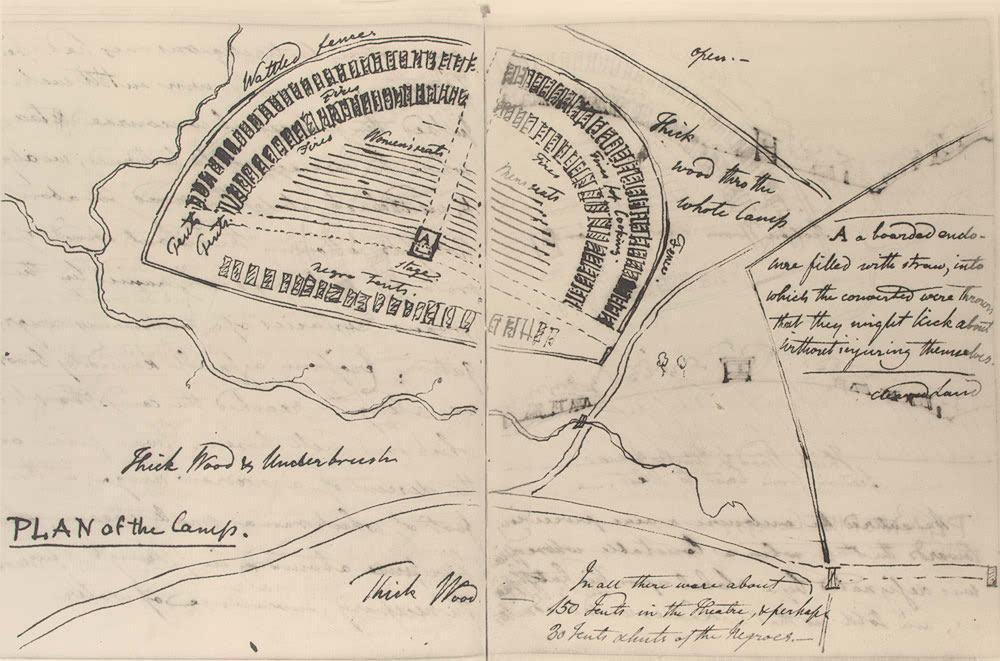 Wattled fences
open.—
Fires
Fires
Women's seats
Thick
wood thro the
whole Camp
Fires
Mens seats
Fires for Cooking
Fences
Tents
Tents
A
Stage
Negro Tents.
A a boarded enclo-
sure filled with straw, into
which the converted were thrown
that they might kick about
without injuring themselves.
cleared Land
Thick Wood & Underbrush
PLAN of the Camp.
Thick Wood
In all there were about
150 Tents in the Theatre, & perhaps
30 Tents & huts of the Negroes.—